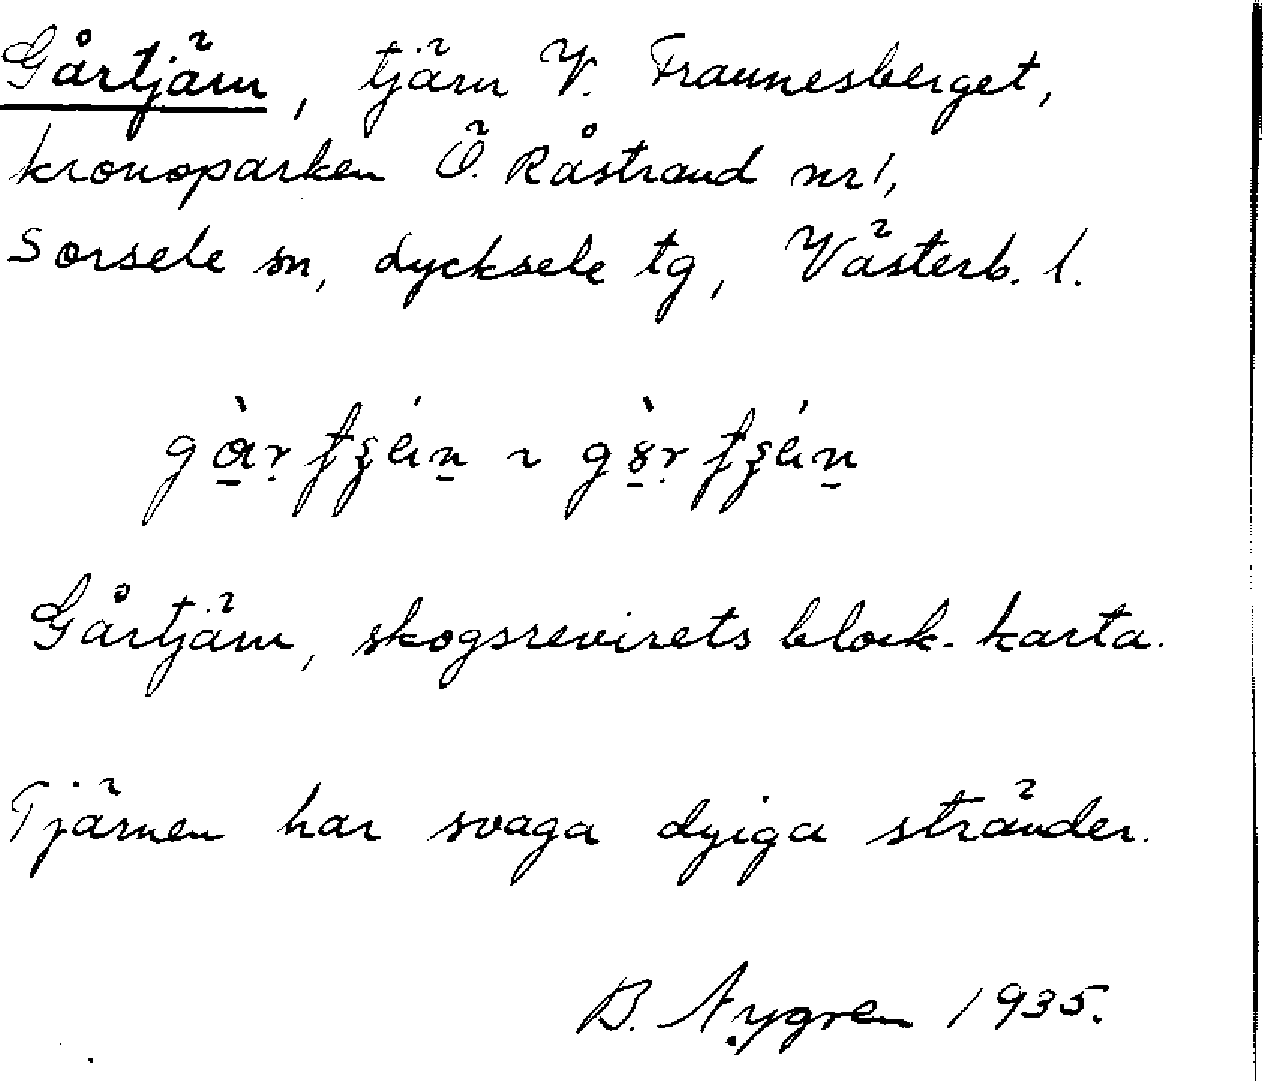 Gårtjärn, tjärn V. Fraunesberget,
kronoparken Ö. Råstrand nr 1,
Sorsele sn, Lycksele tg, Västerb. l.
Gårtjärn, skogsrevirets block-karta.
Tjärnen har svaga dyiga stränder.
B. Nygren 1935.